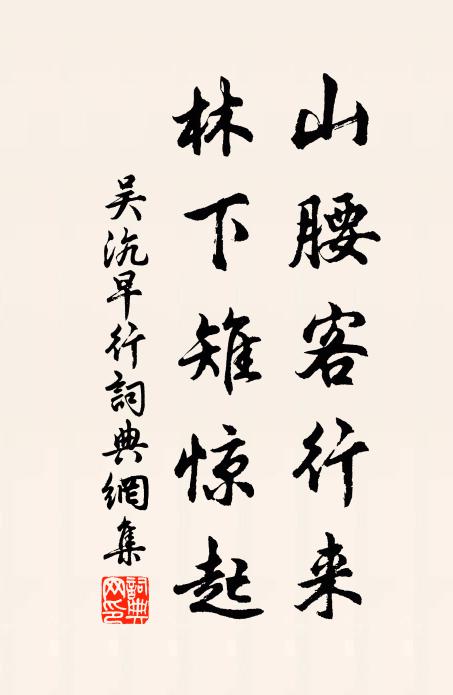 山腰客行来
林下雉惊起
吴沉早行詞典網集
詞典
网印